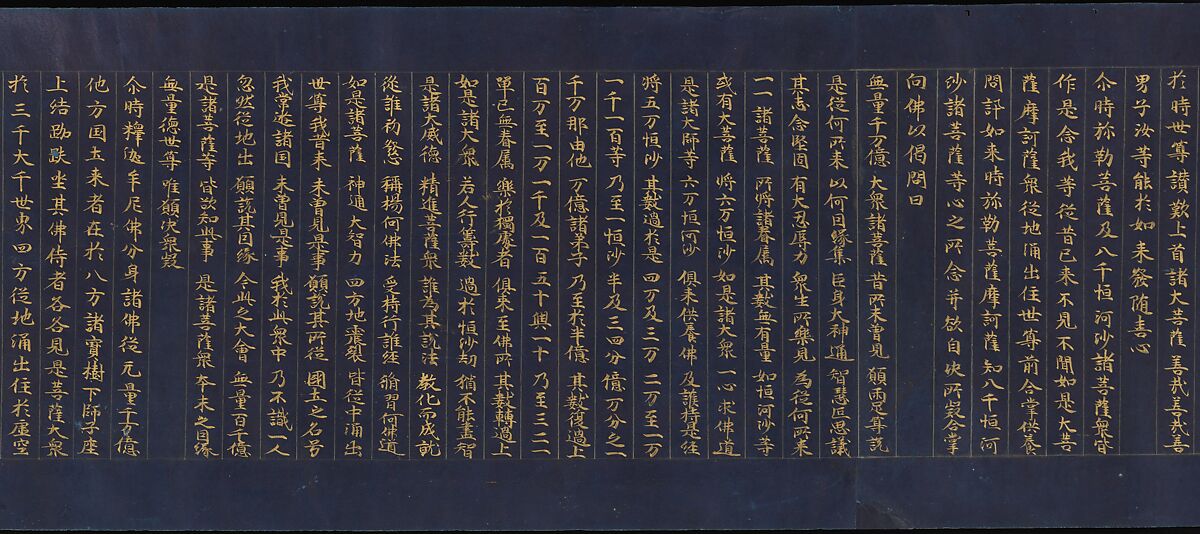 於時世尊讚歎上首諸大菩薩善哉善哉善
男子汝等能於如来發随喜心
尒時弥勒菩薩及八千恒河沙諸菩薩衆皆
作是念我等從昔已来不見不聞如是大菩
薩摩訶薩衆從地涌出住世尊前合掌供養
問訊如来時弥勒菩薩摩訶薩知八千恒河
沙諸菩薩等心之所念并欲自決所疑合掌
向佛以偈問曰
無量千万億 大衆諸菩薩 昔所未曾見 願兩足尊說
是從何所来 以何因縁集 巨身大神通 智慧叵思議
其志念堅固 有大忍辱力 衆生所樂見 為從何所来
一一諸菩薩 所將諸眷属 其數無有量 如恒河沙等
或有大菩薩 將六万恒沙 如是諸大衆 一心求佛道
是諸大師等 六万恒河沙 俱来供養佛 及護持是經
將五万恒沙 其數過於是 四万及三万 二万至一万
一千一百等 乃至一恒沙 半及三四分 億万分之一
千万那由他 万億諸弟子 乃至於半億 其數復過上
百万至一万 一千及一百 五十與一十 乃至三二一
單己無眷属 樂於獨處者 俱来至佛所 其數轉過上
如是諸大衆 若人行籌數 過於恒沙劫 猶不能盡智
是諸大威德 精進菩薩衆 誰為其說法 教化而成就
從誰初發心 稱揚何佛法 受持行誰經 脩習何佛道
如是諸菩薩 神通大智力 四方地震裂 皆從中涌出
世尊我昔来 未曾見是事 願說其所從 國土之名号
我常遊諸国 未曾見是事 我於此衆中 乃不識一人
忽然從地出 願說其因縁 今此之大會 無量百千億
是諸菩薩等 皆欲知此事 是諸菩薩衆 本末之因縁
無量德世尊 唯願決衆疑
尒時釋迦牟尼佛分身諸佛從无量千万億
他方国土来者在於八方諸寶樹下師子座
上結跏趺坐其佛侍者各各見是菩薩大衆
於三千大千世東四方從地涌出住於虛空